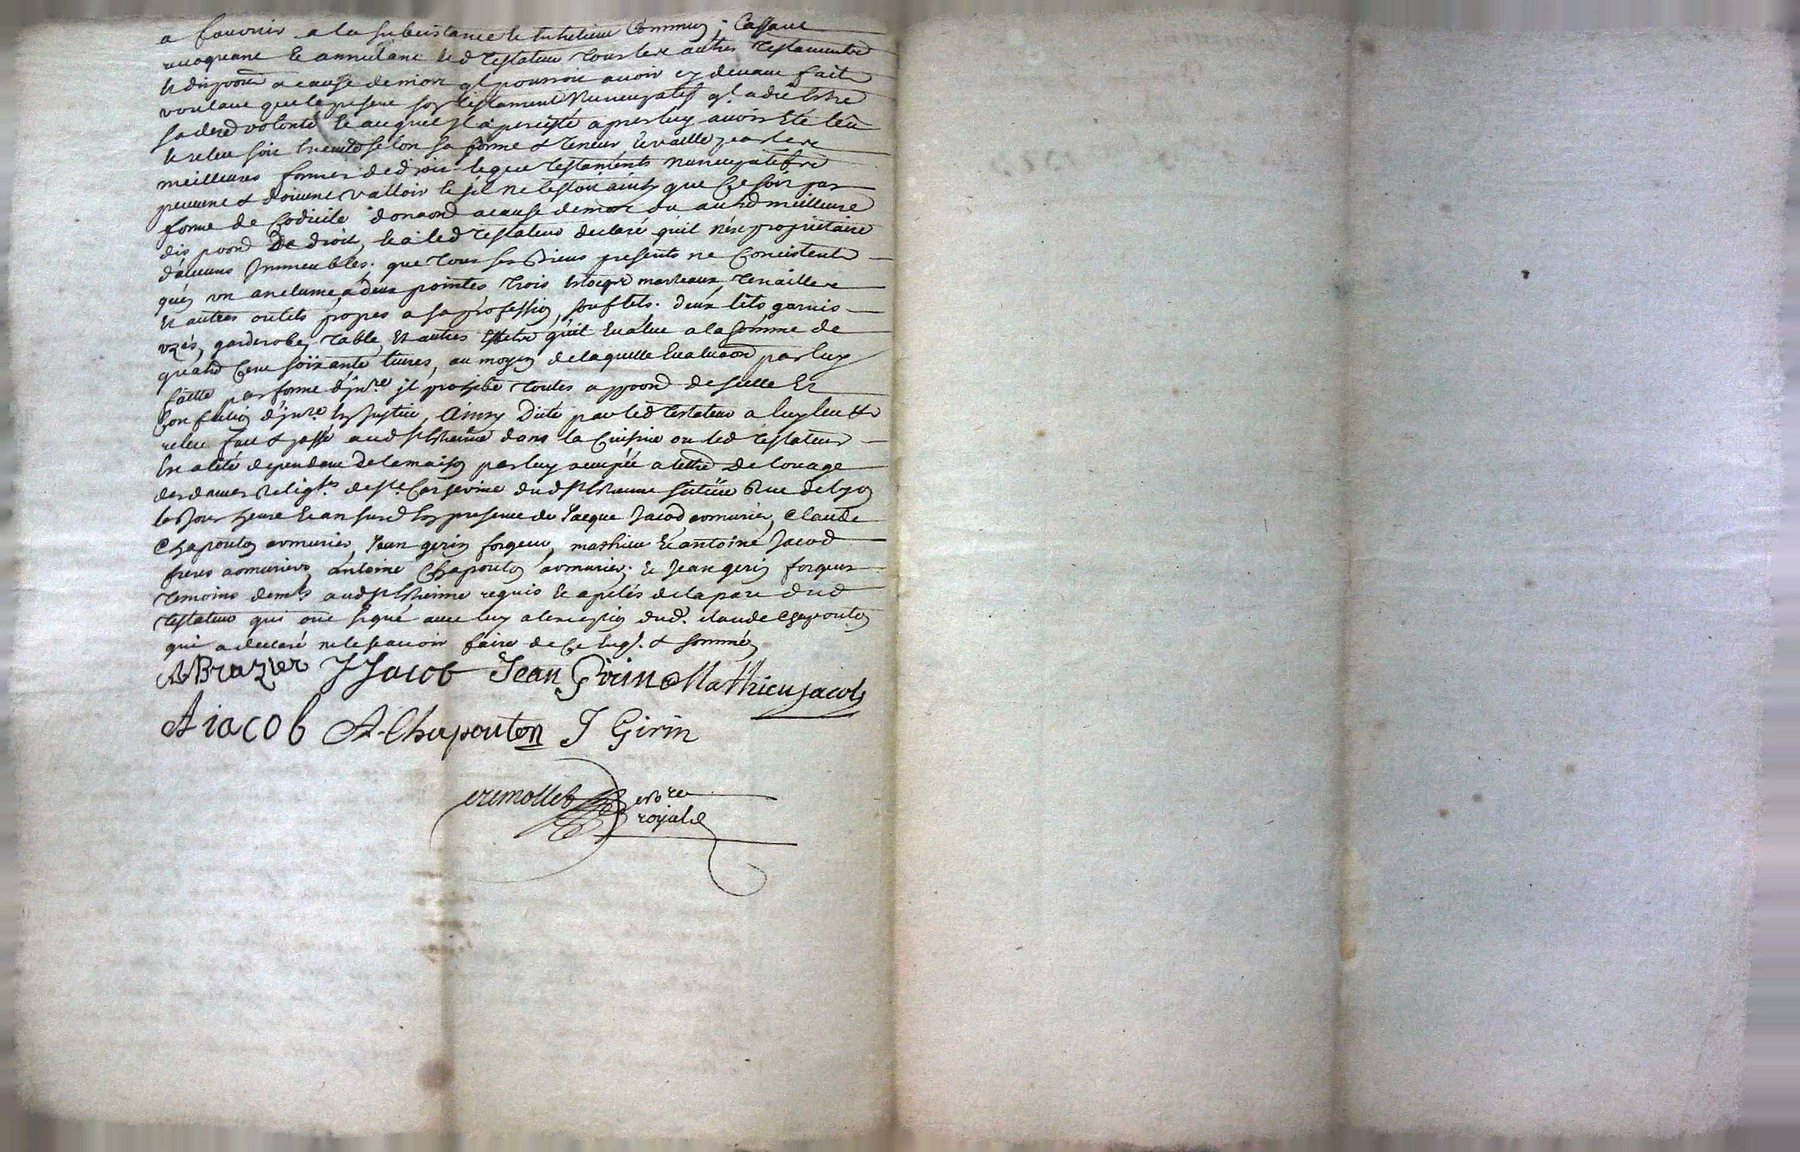 a fournir a la subcistance & entretient Commun ; Cassant
revoquant & annullant led testateur tous les autres testaments
& dispoõns a cause de mort ql pourroit avoir cy devant fait
voulant que le present soy testament nuncupatif ql a dit Estre
sa dere volonté & auquel il a percisté apres luy avoir été leu
& releu soit Executé selon sa forme & teneur & vaille par les
meilleures formes de droit que testaments nuncupatifs
peuvent & doivent valloir & s'il ne lestoit ainsy que Ce soit par
forme de Codicile donaõn a cause de mort ou autre meilleure
dispoõn De droit, & a led testateur declaré qu'il n'est propriétaire
d'aucuns Immeubles. que tous ses Biens presents ne Concistent
qu'en un anclume, a deux pointes trois marteaux tenailles
& autres outils propres a sa profession, souflets. deux lits garnis
uzés, garderobe, table, & autres Effets qu'il Evalue a la somme de
Cent soixante livres, au moyen de laquelle Evaluaõn par luy
faitte par forme d'jnre jl prohibe toutes appoõn de scellé &
Confection d'jnre En Justice, Ainsy Dicté par led testateur a luy leu &
releu fait & passé aud St Etienne dans la Cuisine ou led testateur
En alité dependant de la maison par luy occupée a tittre De louage
des dames Religses de Ste Catherine dud St Etienne scituée Rue de lyon
les Jour heure & an susd En presence de Jacque Jacod armurier, Claude
Chapouton armurier, Jean gerin forgeur, mathieu & antoine Jacod
freres armuriers, antoine Chapouton armurier & Jean gerin forgeur
temoins demts aud St Etienne requis & apellés de la part dud
testateur qui ont signé avec luy a l'exception dud. claude chapouton
qui a declaré ne le sçavoir faire de Ce Enqs. & sommé
A Brazier J Jacob Jean Girin Mathieu jacob
A iacob A Chapouton J Girin
notre
royal